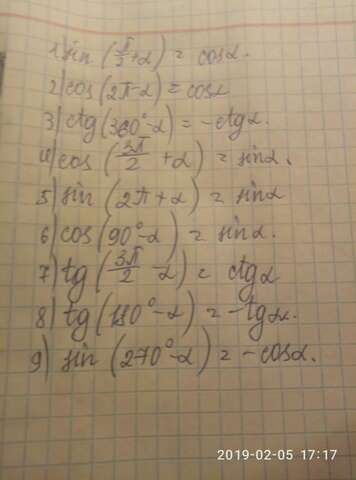 1) sin (π/2 + α) = cosα.
2) cos (2π - α) = cosα
3) ctg (360° - α) = - ctgα.
4) cos (3π/2 + α) = sinα.
5) sin (2π + α) = sinα
6) cos (90° - α) = sinα.
7) tg (3π/2 - α) = ctgα
8) tg (180° - α) = - tgα.
9) sin (270° - α) = - cosα.
2019-02-05 17:17